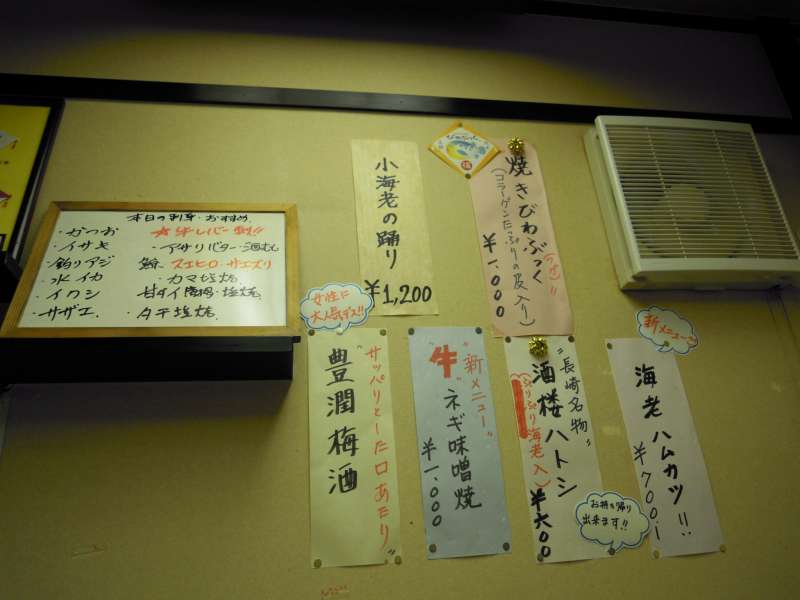 本日の刺身・おすすめ
・かつお
・イサキ
・釣りアジ
・水イカ
・イワシ
・サザエ
・アサリバター・酒むし
鯨 スエヒロ・サエズリ
・カマ塩焼
・タチ塩焼
小海老の踊り
¥1,200
焼きびわぶっく
(コラーゲンたっぷりの皮入り)
¥1.000
女性に
大人気デス!!
サッパリとした口あたり
豊潤梅酒
"新メニュー"
"牛"ネギ味噌焼
¥1.000
"長崎名物"
酒楼ハトシ
(ぷりぷり海老入)
¥600
お持ち帰り
出来ます!!
新メニュー
海老ハムカツ!!
¥700.-